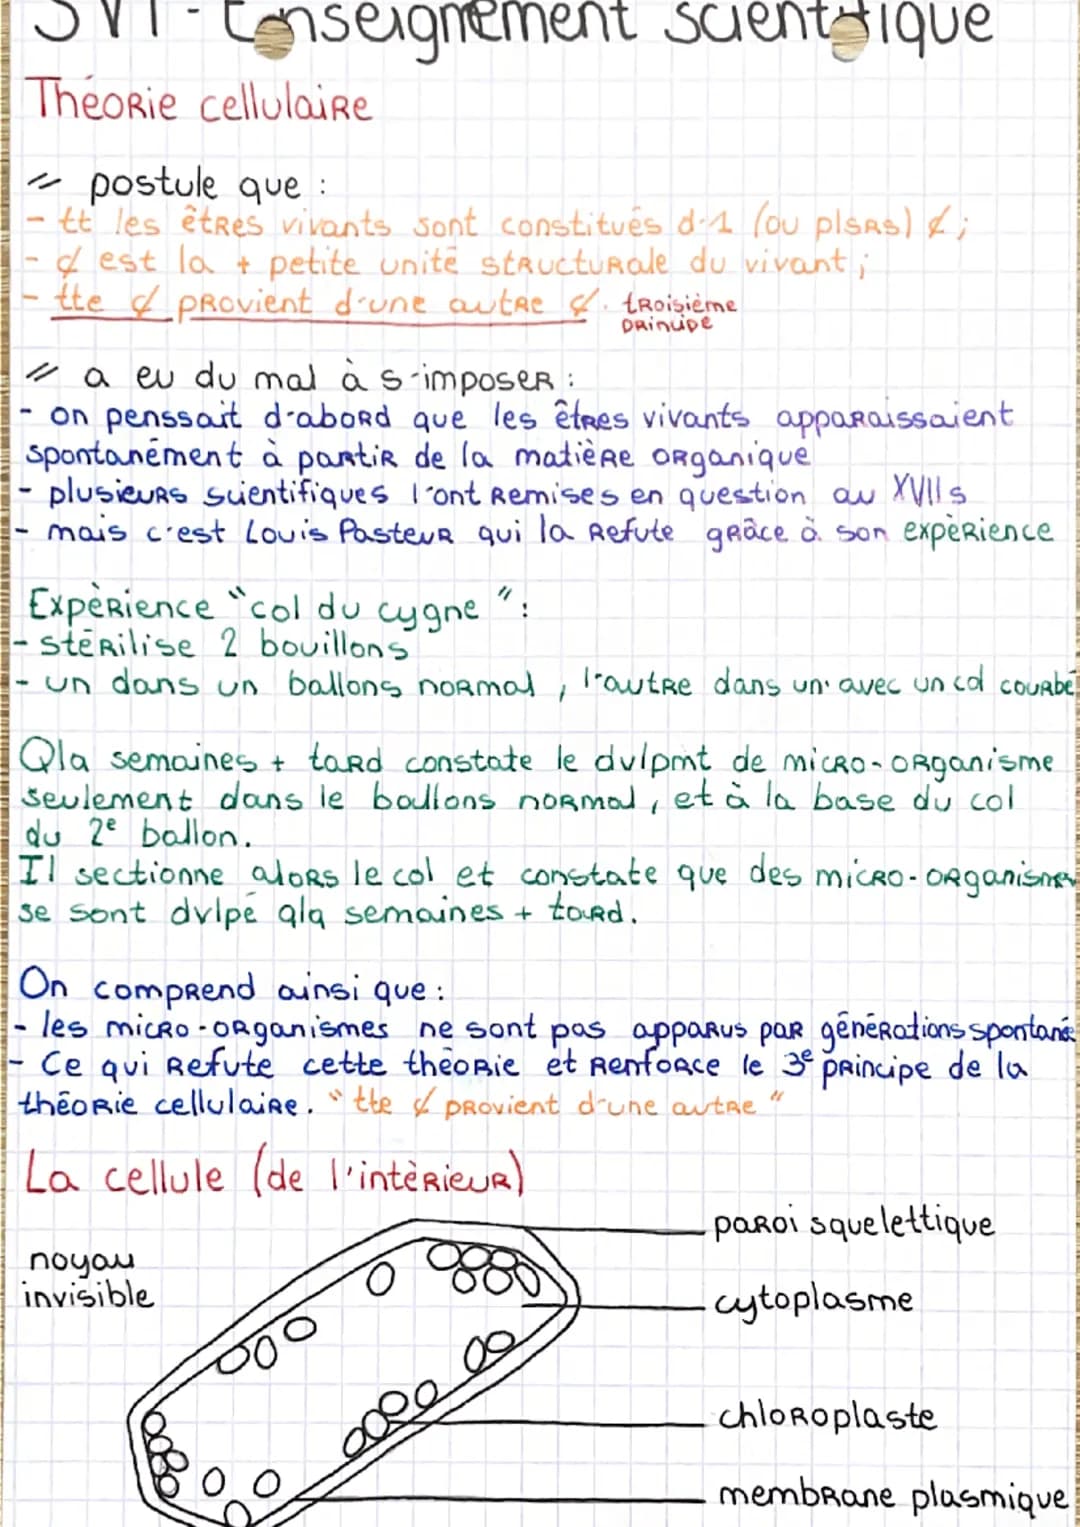 SVT - Enseignement scientifique
Théorie cellulaire
〃 postule que :
- tt les êtres vivants sont constitués d'1 (ou plsrs) ₵ ;
- ₵ est la + petite unité structurale du vivant ;
- tte ₵ provient d'une autre ₵. troisième
principe
〃 a eu du mal à s'imposer :
- on penssait d'abord que les êtres vivants apparaissaient
spontanément à partir de la matière organique
- plusieurs scientifiques l'ont remises en question au XVIIs
- mais c'est Louis Pasteur qui la refute grâce à son expèrience
Expèrience "col du cygne" :
- stérilise 2 bouillons
- un dans un ballons normal, l'autre dans un avec un col courbé
Qlq semaines + tard constate le dvlpmt de micro-organisme
seulement dans le ballons normal, et à la base du col
du 2e ballon.
Il sectionne alors le col et constate que des micro-organismes
se sont dvlpé qlq semaines + tard.
On comprend ainsi que :
- les micro-organismes ne sont pas apparus par générations spontané
- Ce qui refute cette thèorie et renforce le 3e principe de la
théorie cellulaire. "tte ₵ provient d'une autre"
La cellule (de l'intèrieur)
paroi squelettique
noyau
invisible
cytoplasme
chloroplaste
membrane plasmique